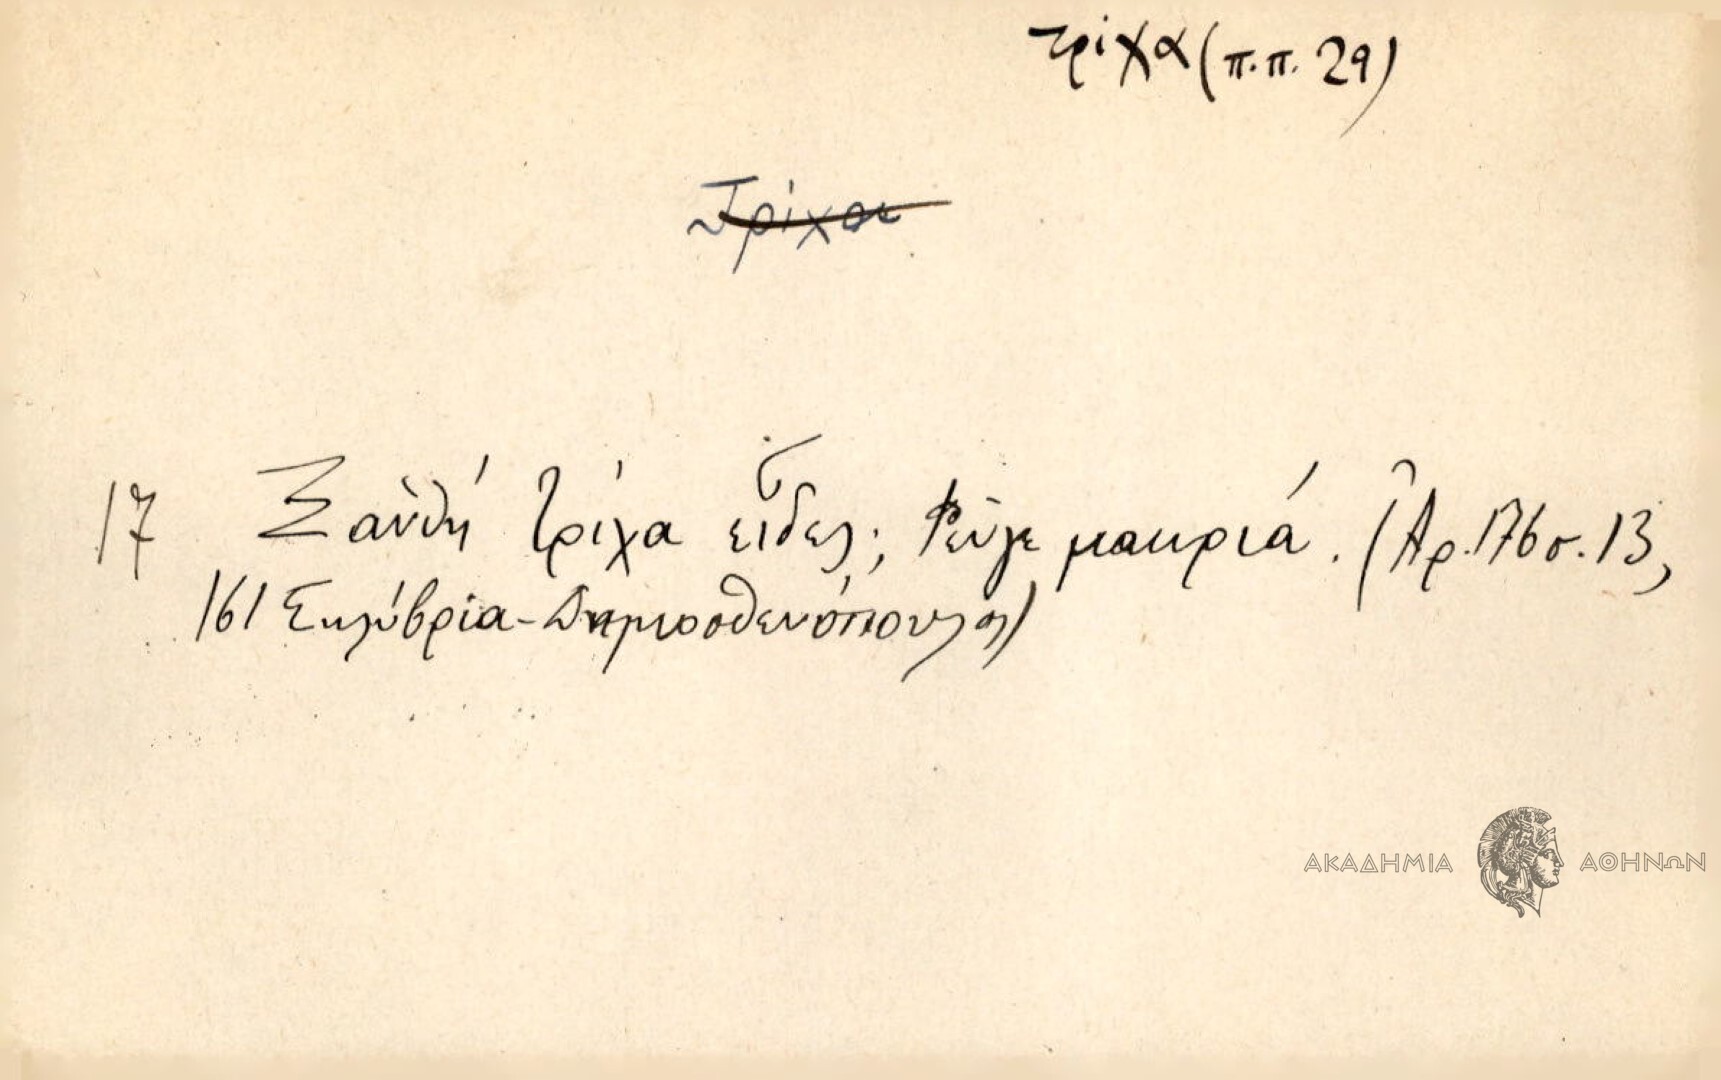 τρίχα (π.π. 29)
Τρίχα
17 Ξανθή τρίχα εἶδες; Φεύγε μακριά. (Ἀρ. 176 σ. 13,
161 Σηλύβρια - Δημοσθενόπουλος)
ΑΚΑΔΗΜΙΑ ΑΘΗΝΩΝ